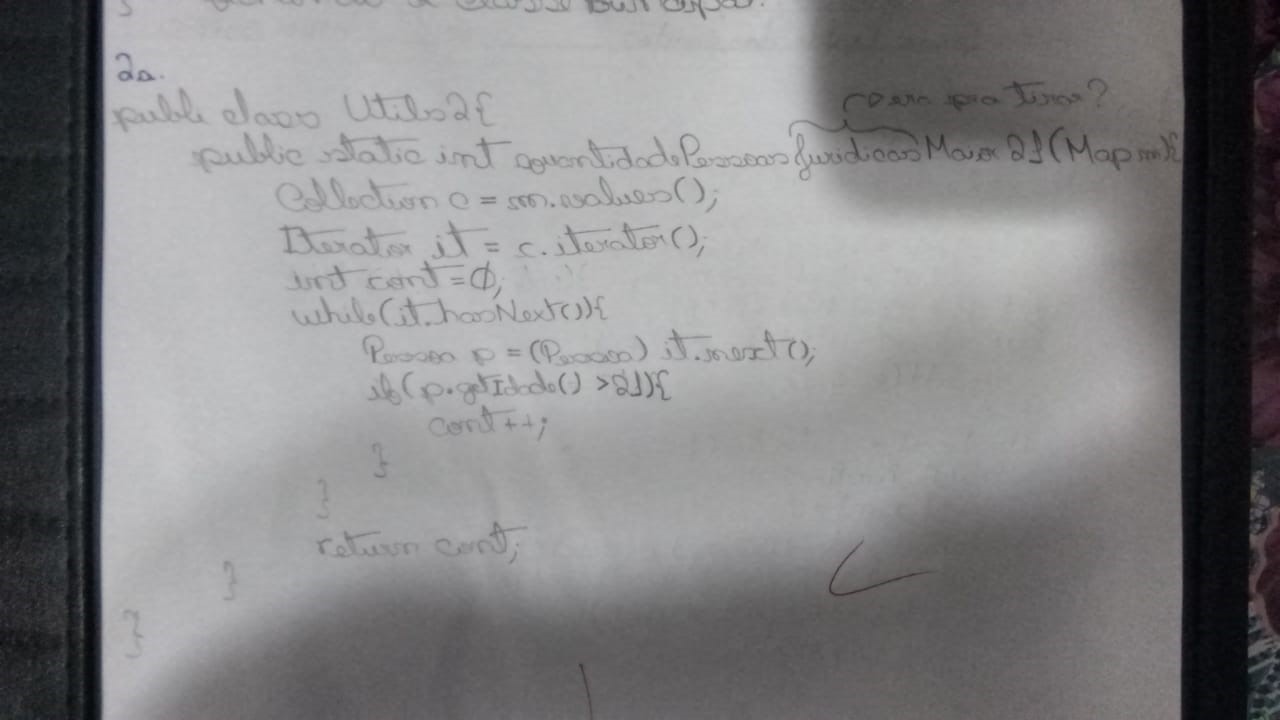 2a.
publi class Utils2{
era pra tirar?
public static int quantidadePessoasJuridicasMaior21(Map m){
Collection c = m.values();
Iterator it = c.iterator();
int cont=0;
while(it.hasNext()){
Pessoa p = (Pessoa) it.next();
if(p.getIdade() >21){
cont++;
}
}
return cont;
}
}